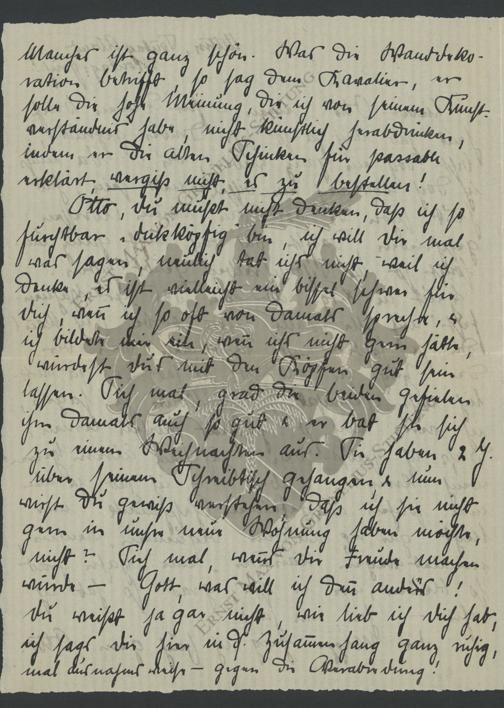 Manches ist ganz schön. Was die Wanddeko-
ration betrifft so sag dem Kavalier, er
solle die hohe Meinung, die ich von seinem Kunst-
verständnis habe, nicht künstlich herabdrücken,
indem er die alten Schinken für passabel
erklärt, vergiss nicht, es zu bestellen!
Otto, du mußt nicht denken, daß ich so
furchtbar dickköpfig bin, ich will dir mal
was sagen, neulich tat ichs nicht weil ich
denke, es ist vielleicht ein bissel schwer für
dich, wenn ich so oft von damals spreche, &
ich bildete mir ein, wenn ichs nicht gern hätte,
würdest du's mit den Köpfen gut sein
lassen. Sieh mal, grad die beiden gefielen
ihm damals auch so gut & er bat sie sich
zu einem Weihnachten aus. Sie haben 2 J.
über seinem Schreibtisch gehangen & nun
wirst du gewiss verstehen, daß ich sie nicht
gern in unsre neue Wohnung haben möchte,
nicht? Sieh mal, wenns dir Freude machen
würde – Gott, was will ich denn anders!
du weißt ja gar nicht, wie lieb ich dich hab,
ich sags dir hier in d. Zusammenhang ganz ruhig,
mal ausnahmsweise – gegen die Verabredung!
ERNST
STIFTUNG